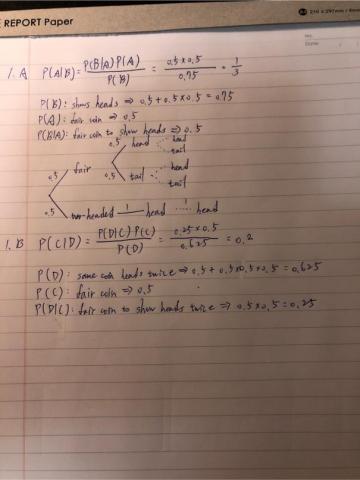 E REPORT Paper
No.
Date
1. A P(A|B) = P(B|A) P(A) / P(B) = 0.5 x 0.5 / 0.75 = 1/3
P(B): shows heads => 0.5 + 0.5 x 0.5 = 0.75
P(A): fair coin => 0.5
P(B|A): fair coin to show heads => 0.5
0.5 head head
tail
fair
0.5 0.5 tail head
tail
0.5 two-headed 1 head 1 head
1. B P(C|D) = P(D|C) P(C) / P(D) = 0.25 x 0.5 / 0.625 = 0.2
P(D): same coin heads twice => 0.5 + 0.5 x 0.5 x 0.5 = 0.625
P(C): fair coin => 0.5
P(D|C): fair coin to show heads twice => 0.5 x 0.5 = 0.25